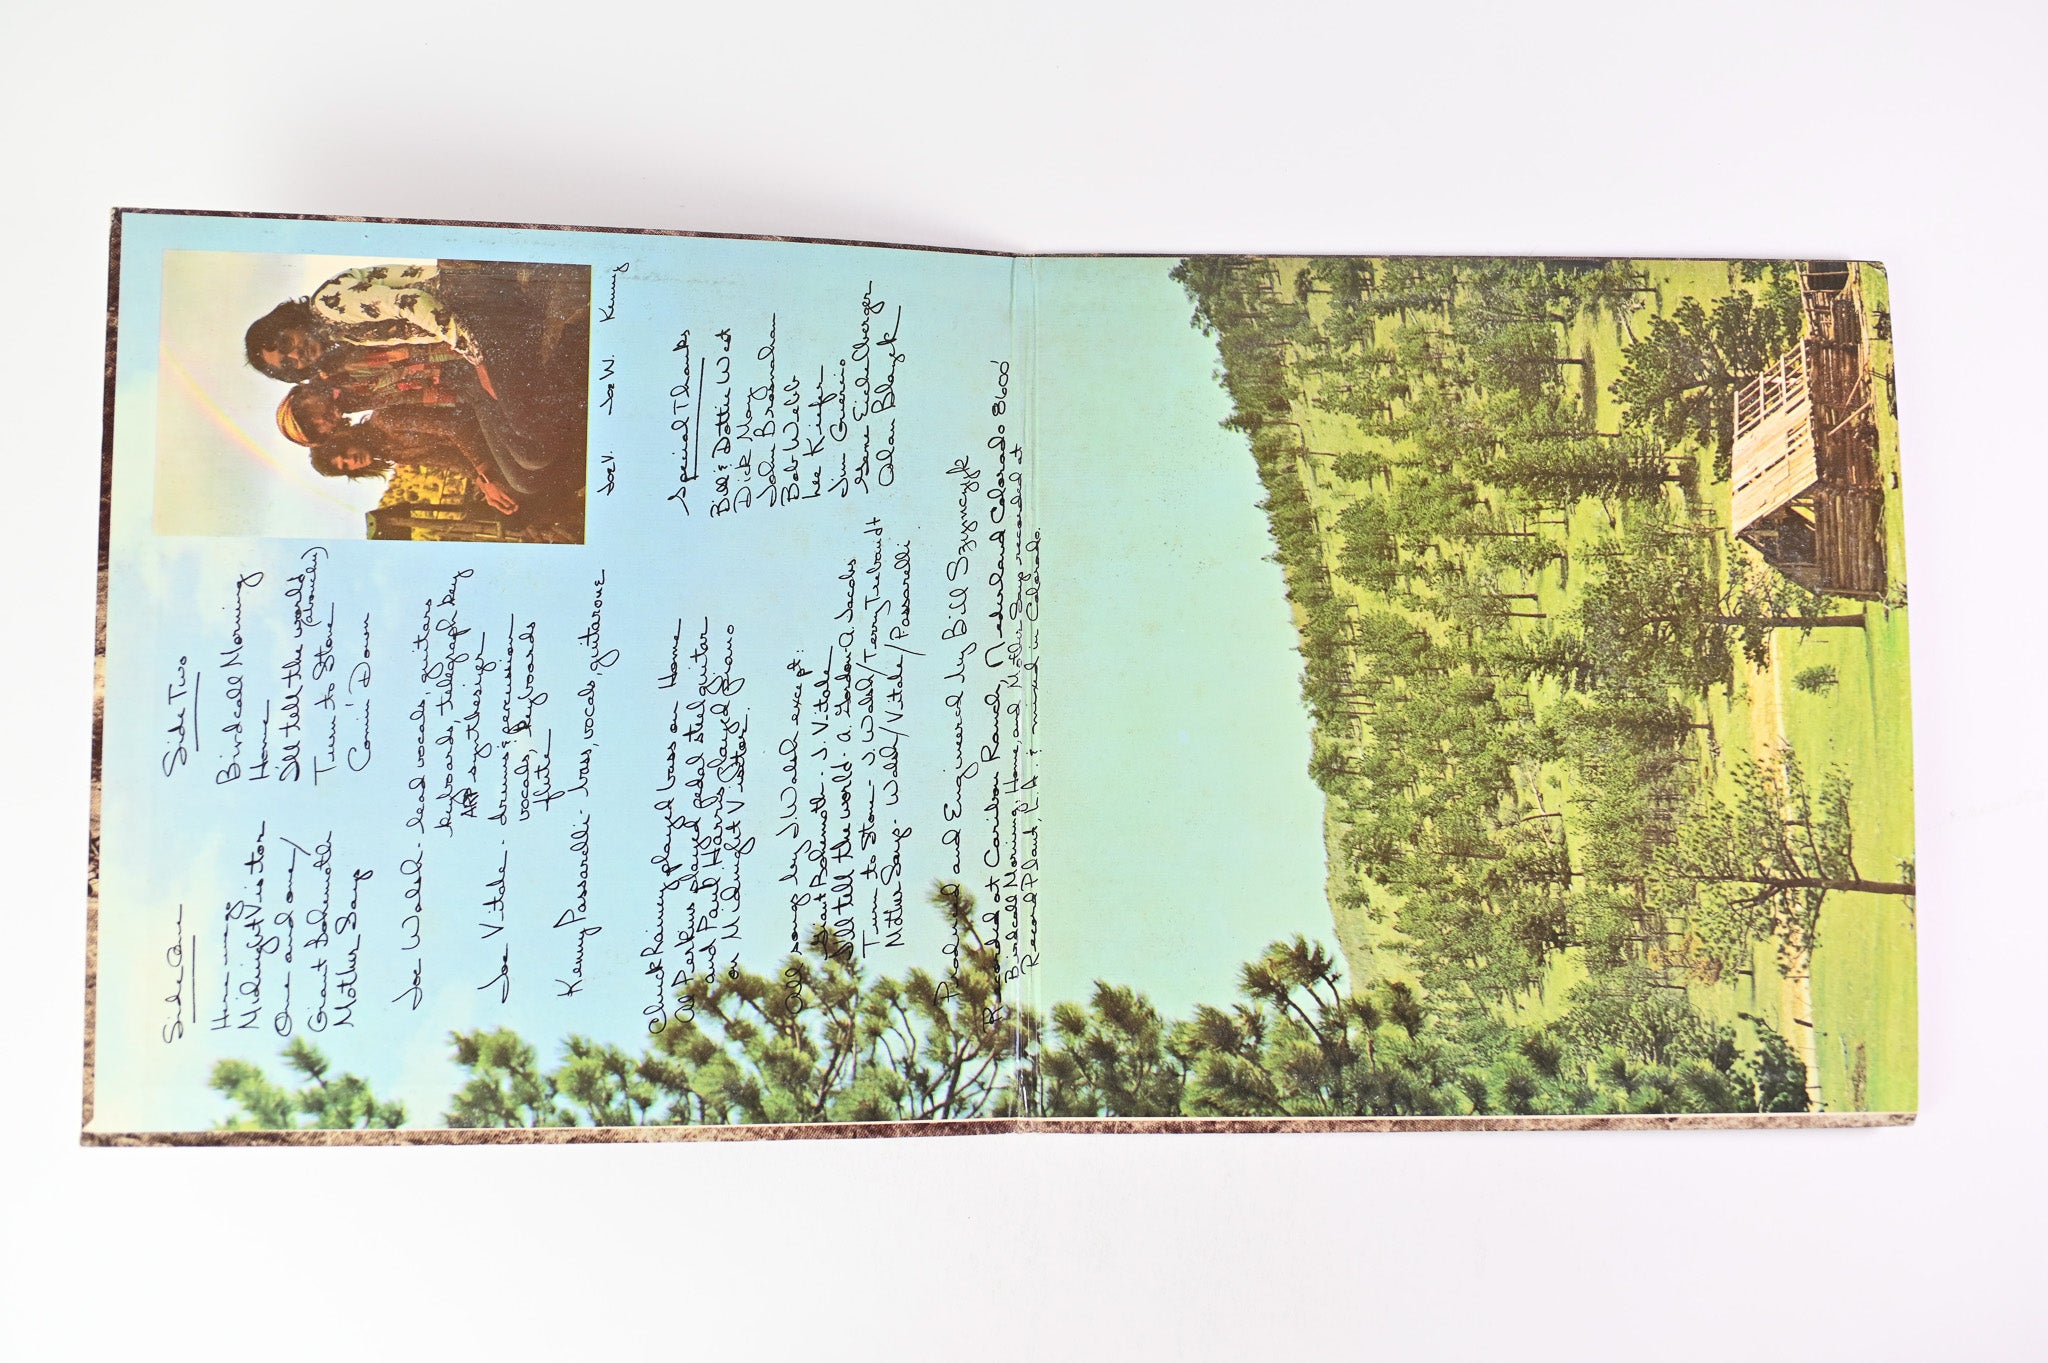 Side One
Here we go
Midnight Visitor
One and one/
Giant Bohemoth
Mother Says
Side Two
Birdcall Morning
Home
I'll tell the world
(about you)
Turn to Stone
Comin' Down
Joe V. Joe W. Kenny
Joe Walsh - lead vocals, guitars
keyboards, telegraph key
ARP synthesizer
Joe Vitale - drums & percussion
vocals, keyboards
flute
Kenny Passarelli - bass, vocals, guitarone
Chuck Rainey played bass on Home
Al Perkins played pedal steel guitar
and Paul Harris played piano
on Midnight Visitor.
Special Thanks
Bill & Dottie West
Dick May
John Brosnahan
Bob Webb
Lee Kiefer
Jim Guercio
Gene Eichelberger
Alan Blazek
All songs by J Walsh except:
Giant Bohemoth - J. Vitale
I'll tell the world - A. Gordon - A. Jacobs
Turn to Stone - J. Walsh/Terry Trebandt
Mother Says - Walsh/Vitale/Passarelli
Produced and Engineered by Bill Szymczyk
Recorded at Caribou Ranch, Nederland Colorado 8600'
Birdcall Morning, Home, and Mother Says recorded at
Record Plant, L.A. & mixed in Colorado.